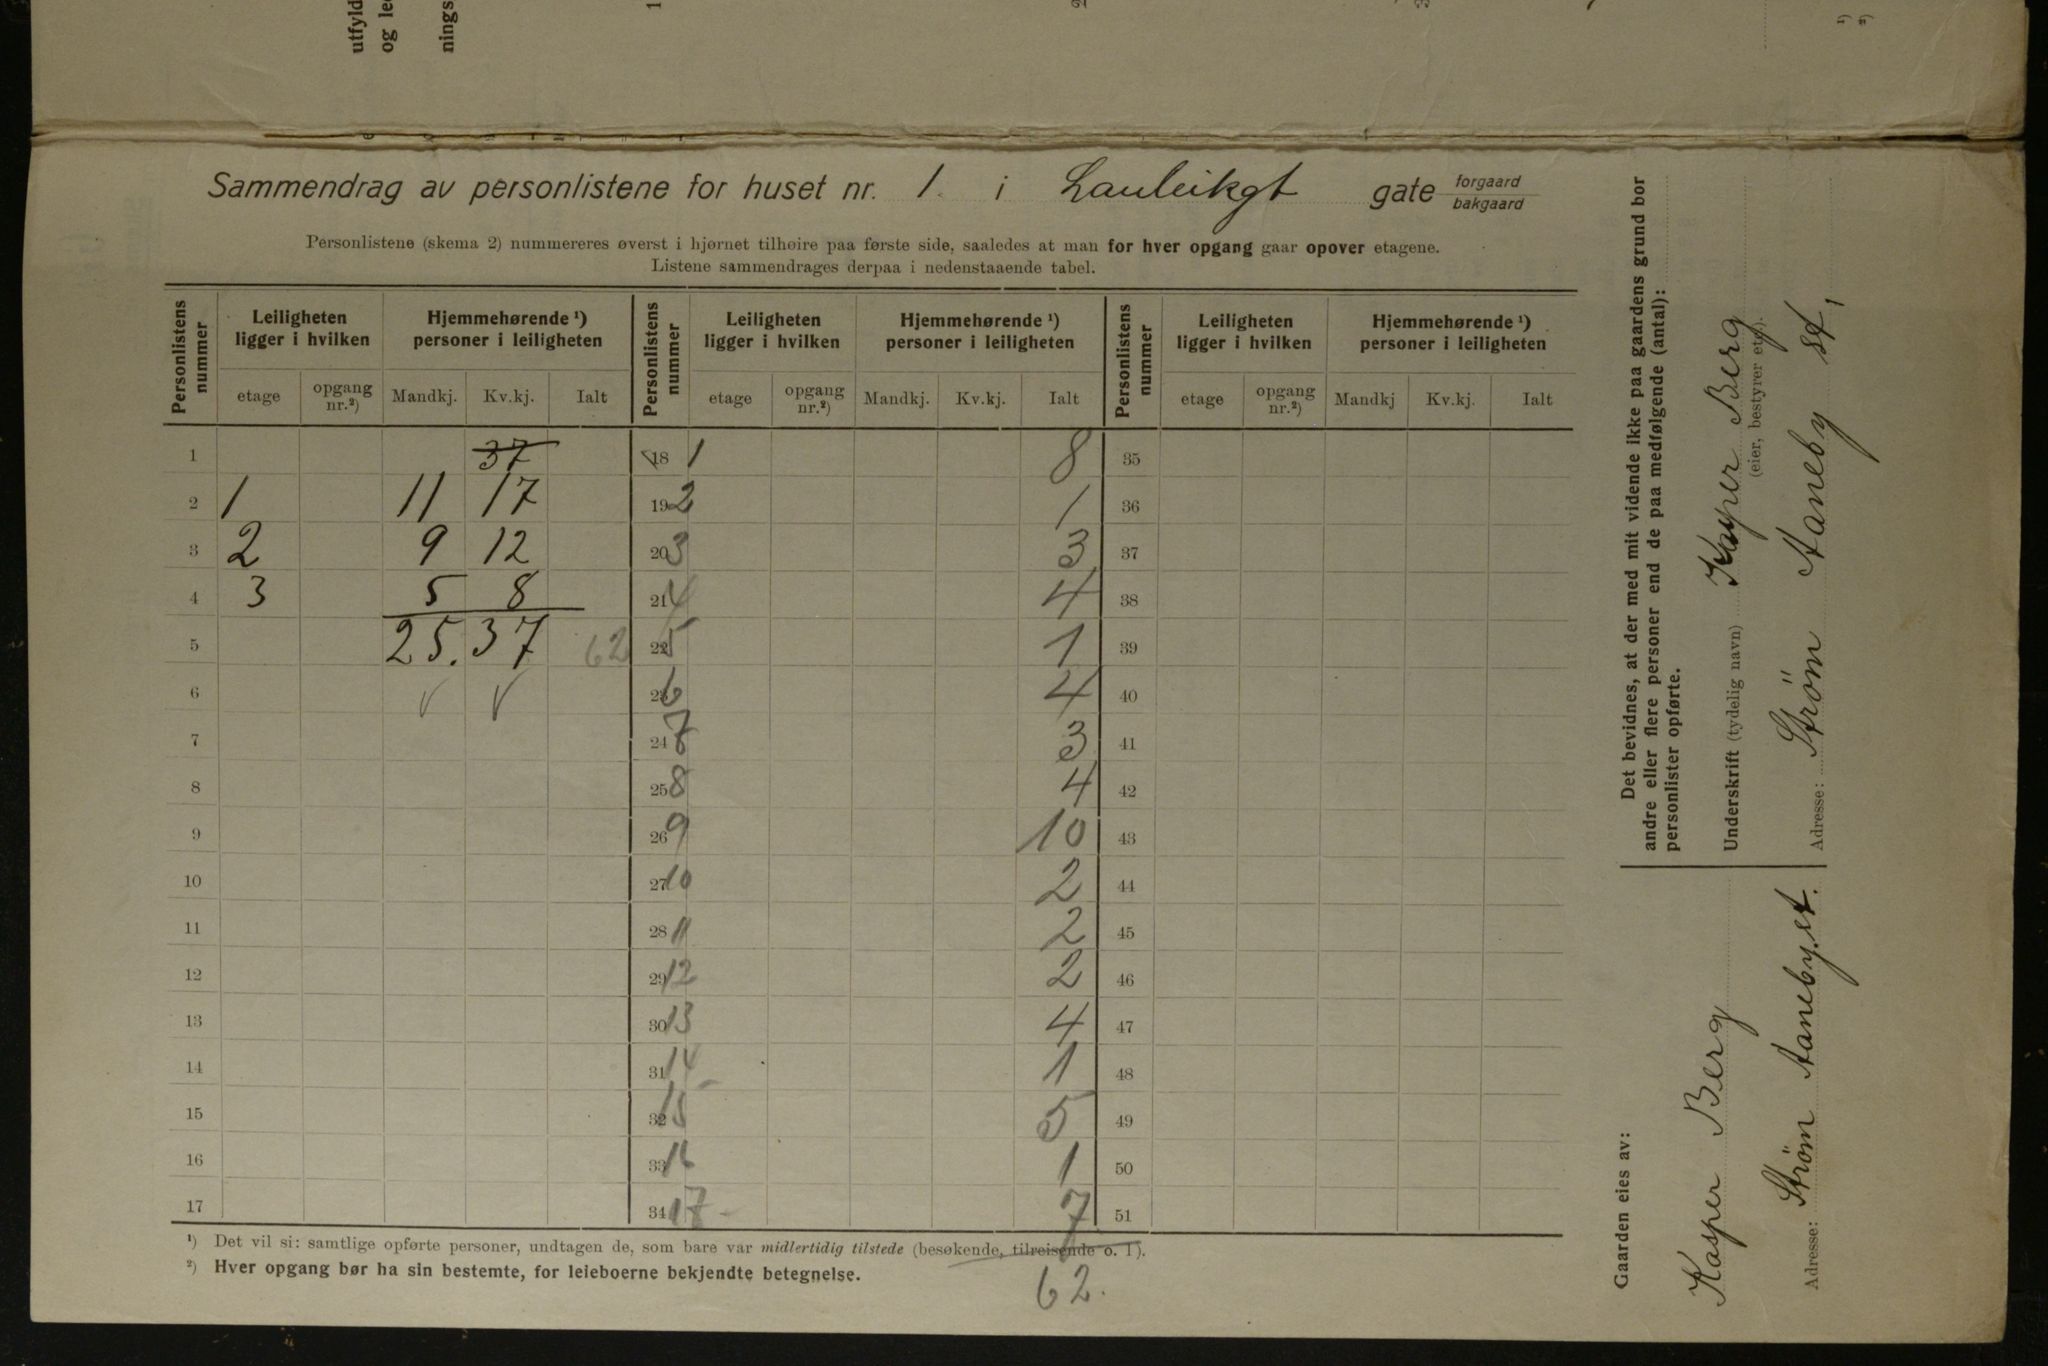 utfyld
og le
nings
Sammendrag av personlistene for huset nr. 1. i Lauleikgt gate forgaard
bakgaard
Personlistene (skema 2) nummereres øverst i hjørnet tilhøire paa første side, saaledes at man for hver opgang gaar opover etagene.
Listene sammendrages derpaa i nedenstaaende tabel.
Personlistens nummer | Leiligheten ligger i hvilken | Hjemmehørende ¹) personer i leiligheten | Personlistens nummer | Leiligheten ligger i hvilken | Hjemmehørende ¹) personer i leiligheten | Personlistens nummer | Leiligheten ligger i hvilken | Hjemmehørende ¹) personer i leiligheten
etage | opgang nr.²) | Mandkj. | Kv.kj. | Ialt | etage | opgang nr.²) | Mandkj. | Kv.kj. | Ialt | etage | opgang nr.²) | Mandkj | Kv.kj. | Ialt
1 37 18 1 8 35
2 1 11 17 19 2 1 36
3 2 9 12 20 3 3 37
4 3 5 8 21 4 4 38
5 25. 37 62 22 5 1 39
6 √ √ 23 6 4 40
7 24 7 3 41
8 25 8 4 42
9 26 9 10 43
10 27 10 2 44
11 28 11 2 45
12 29 12 2 46
13 30 13 4 47
14 31 14 1 48
15 32 15 5 49
16 33 16 1 50
17 34 17 7 51
¹) Det vil si: samtlige opførte personer, undtagen de, som bare var midlertidig tilstede (besøkende, tilreisende o. l).
²) Hver opgang bør ha sin bestemte, for leieboerne bekjendte betegnelse.
62.
Det bevidnes, at der med mit vidende ikke paa gaardens grund bor
andre eller flere personer end de paa medfølgende (antal):
personlister opførte.
Underskrift (tydelig navn) Kasper Berg
(eier, bestyrer etc.).
Adresse: Strøm Aaneby st,
Gaarden eies av:
Kasper Berg
Adresse: Strøm Aaneby.st.